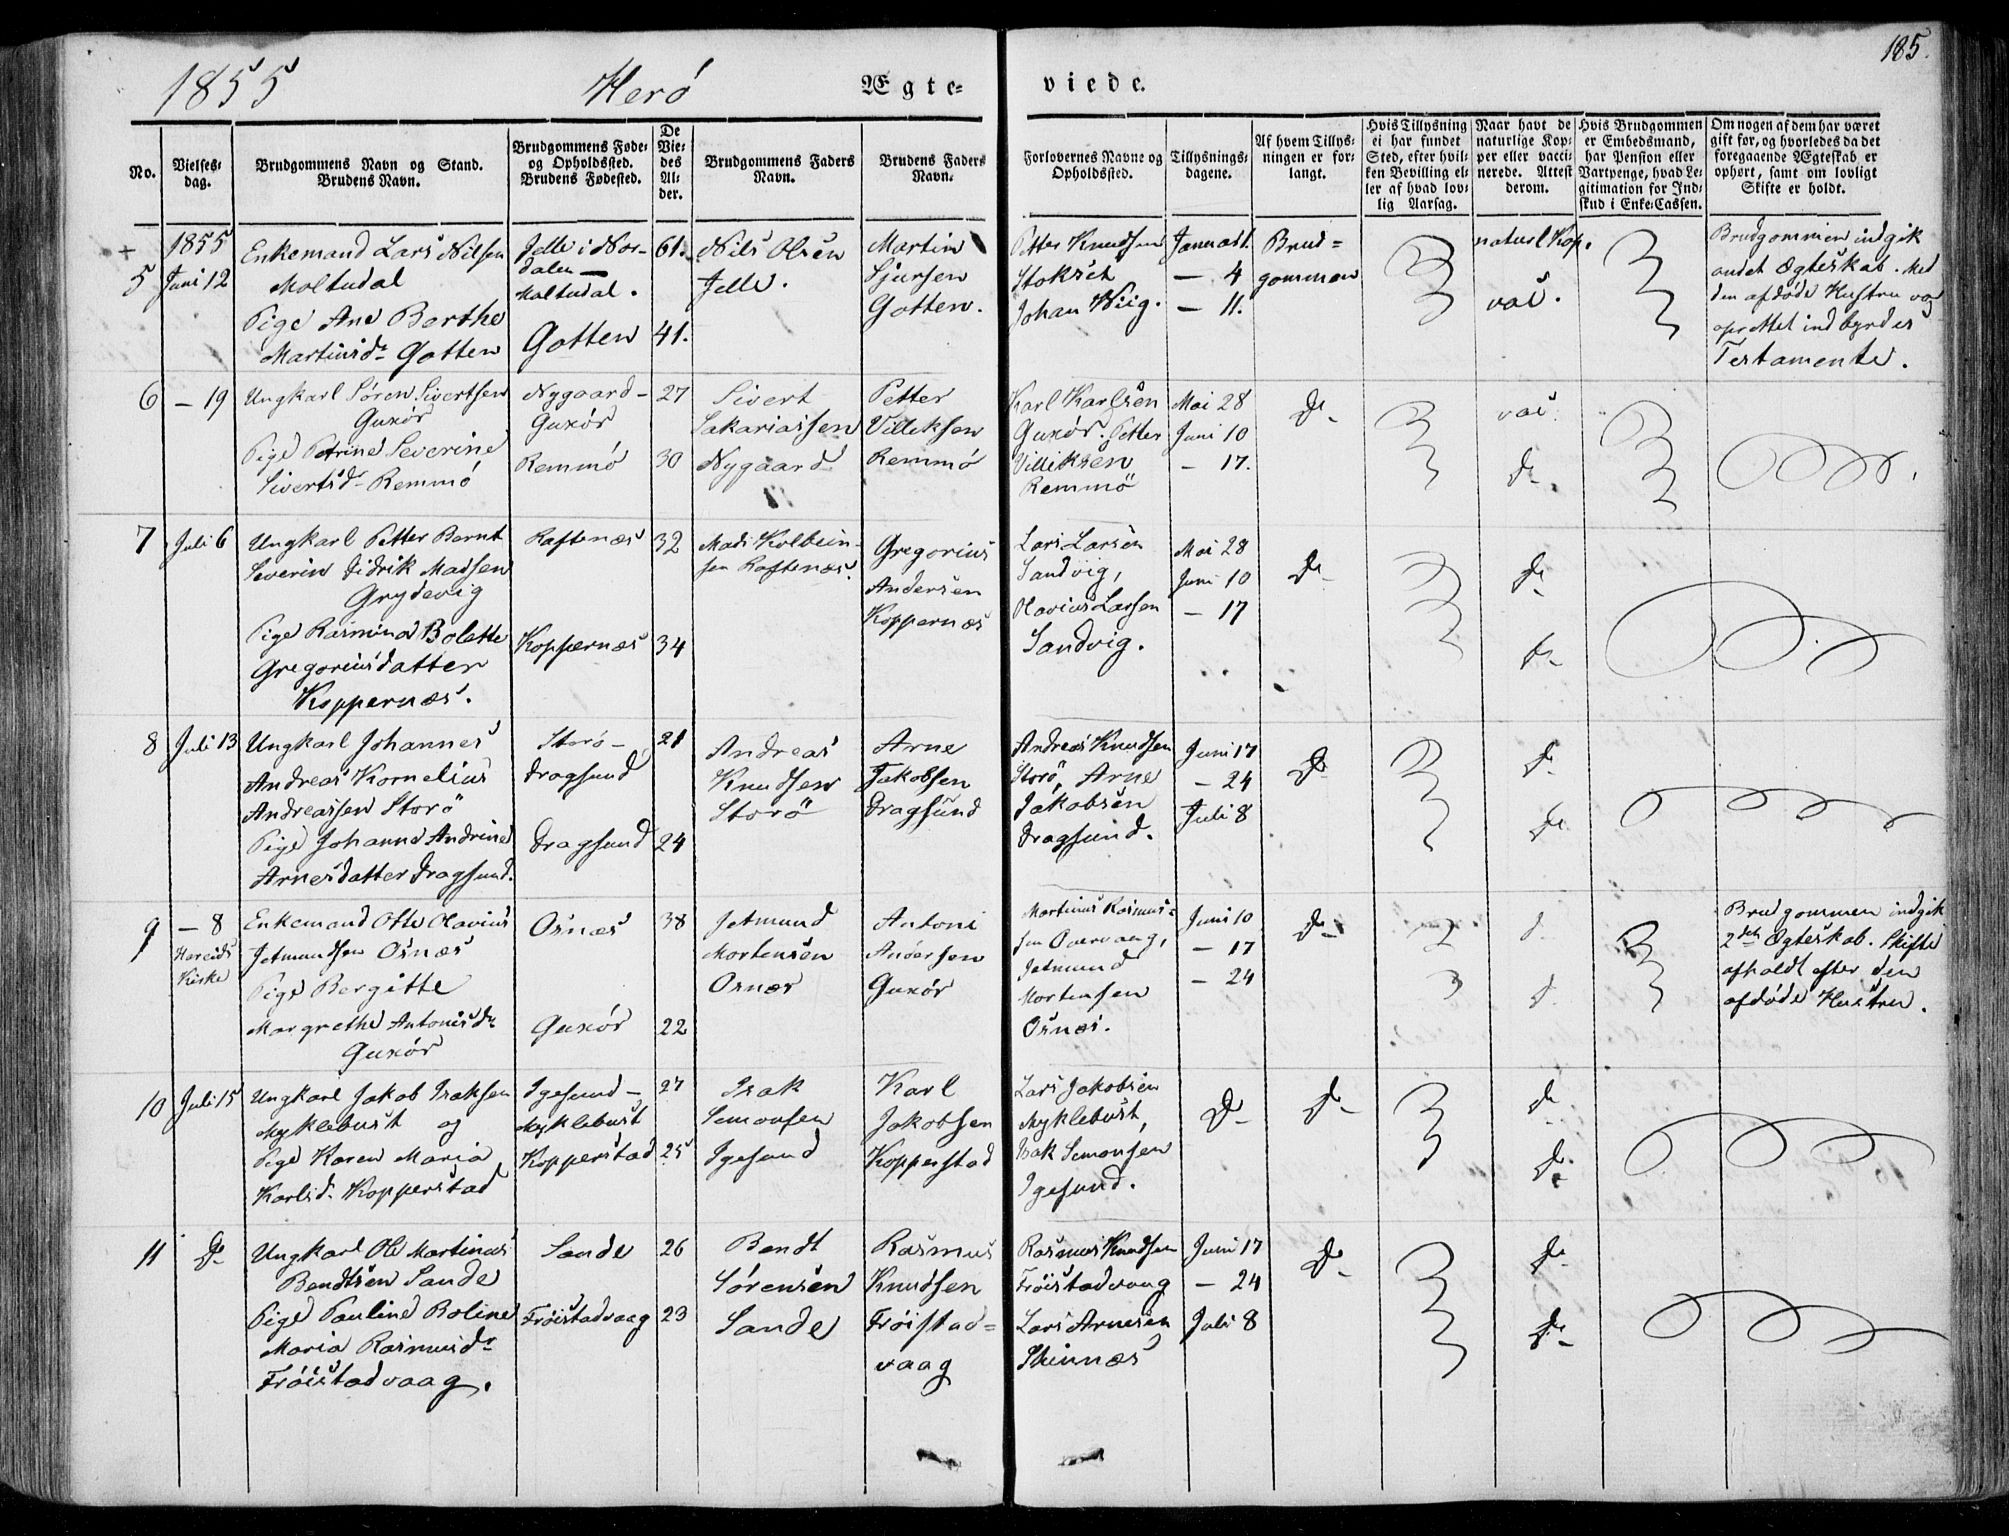 185.
1855 Herö Ægte-viede.
No.
Vielses-dag.
Brudgommens Navn og Stand. Brudens Navn.
Brudgommens Føde- og Opholdssted. Brudens Fødested.
De Viedes Alder.
Brudgommens Faders Navn.
Brudens Faders Navn.
Forlovernes Navne og Opholdssted.
Tillysnings-dagene.
Af hvem Tillysningen er forlangt.
Hvis Tillysning ei har fundet Sted, efter hvilken Bevilling eller af hvad lovlig Aarsag.
Naar havt de naturlige Kopper eller vaccinerede. Attest derom.
Hvis Brudgommen er Embedsmand, har Pension eller Vartpenge, hvad Legitimation for Indskud i Enke-Cassen.
Om nogen af dem har været gift før, og hvorledes da det foregaaende Ægteskab er ophørt, samt om lovligt Skifte er holdt.
+
5
1855
Juni 12
Enkemand Lars Nilsen
Moltudal
Pige Ane Berthe
Martinsdr Gotten
Jelle i Nor-
dalen —
Moltudal.
Gotten
61.
41.
Nils Olsen
Jelle.
Martin
Sjursen
Gotten.
Petter Knudsen
Stokset
Johan Wiig.
— 4
— 11.
Brud=
gommen
naturl Kop.
vac.
Brudgommen indgik
andet Ægteskab. Med
den afdøde Hustru var
oprettet indbyrdes
Testamente.
6
— 19
Ungkarl Søren Sivertsen
Guxör
Pige Petrine Severine
Sivertsd. Remmö
Nygaard-
Guxör
Remmö
27
30
Sivert
Sakariassen
Nygaard
Petter
Villiksen
Remmö
Karl Karlsen
Guxör. Petter
Villiksen
Remmö
Mai 28
Juni 10
— 17.
Do
vac.
Do
7
Juli 6
Ungkarl Petter Bernt
Severin Didrik Madsen
Grydevig
Pige Rasmine Bolette
Gregoriusdatter
Koppernæs.
Raftenæs
Koppernæs
32
34
Mads Kolbein-
sen Raftenæs.
Gregorius
Andersen
Koppernæs
Lars Larsen
Sandvig,
Olavius Larsen
Sandvig.
Mai 28
Juni 10
— 17
Do
Do
Do
8
Juli 13
Ungkarl Johannes
Andreas Kornelius
Andreassen Storö
Pige Johanne Andrine
Arnesdatter Dragsund.
Storö-
Dragsund
Dragsund
21
24
Andreas
Knudsen
Storö
Arne
Jakobsen
Dragsund
Andreas Knudsen
Storö, Arne
Jakobsen
Dragsund.
Juni 17
— 24
Juli 8
Do
Do
Do
9
— 8
Hareids
Kirke
Enkemand Otte Olavius
Jetmundsen Osnæs
Pige Bergitte
Margrethe Antonisdr
Guxör
Osnæs
Guxör
38
22
Jetmund
Mortensen
Osnæs
Antoni
Andersen
Guxör
Martinus Rasmus-
sen
Jetmund
Mortensen
Osnæs.
Juni 10
— 17
— 24
Do
d.
d.
Brudgommen indgik
2det Ægteskab. Skifte
afholdt efter den
afdøde Hustru.
10
Juli 15
Ungkarl Jakob Isaksen
Myklebust og
Pige Karen Maria
Karlsd. Kopperstad
Igesund-
Myklebust
Kopperstad
27
25
Isak
Semonsen
Igesund
Karl
Jakobsen
Kopperstad
Lars Jakobsen
Myklebust,
Isak Semonsen
Igesund.
Do
Do
Do
Do
11
Do
Ungkarl Ole Martinus
Bendtsen Sande
Pige Pauline Boline
Maria Rasmusdr
Fröistadvaag.
Sande
Fröistadvaag
26
23
Bendt
Sörensen
Sande
Rasmus
Knudsen
Fröistad=
vaag
Rasmus Knudsen
Fröistadvaag
Lars Arnesen
Skinnæs
Juni 17
— 24
Juli 8
Do
Do
Do